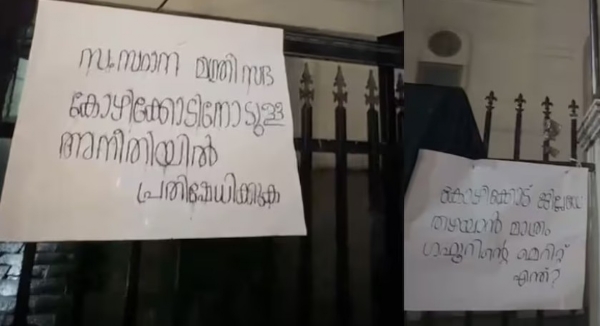 സംസ്ഥാന മന്ത്രിസഭ
കോഴിക്കോടിനോടുള്ള
അനീതിയിൽ
പ്രതിഷേധിക്കുക
കോഴിക്കോട് ജില്ലയെ
തഴയാൻ മാത്രം
ഗഫൂറിന്റെ മെറിറ്റ്
എന്ത്?